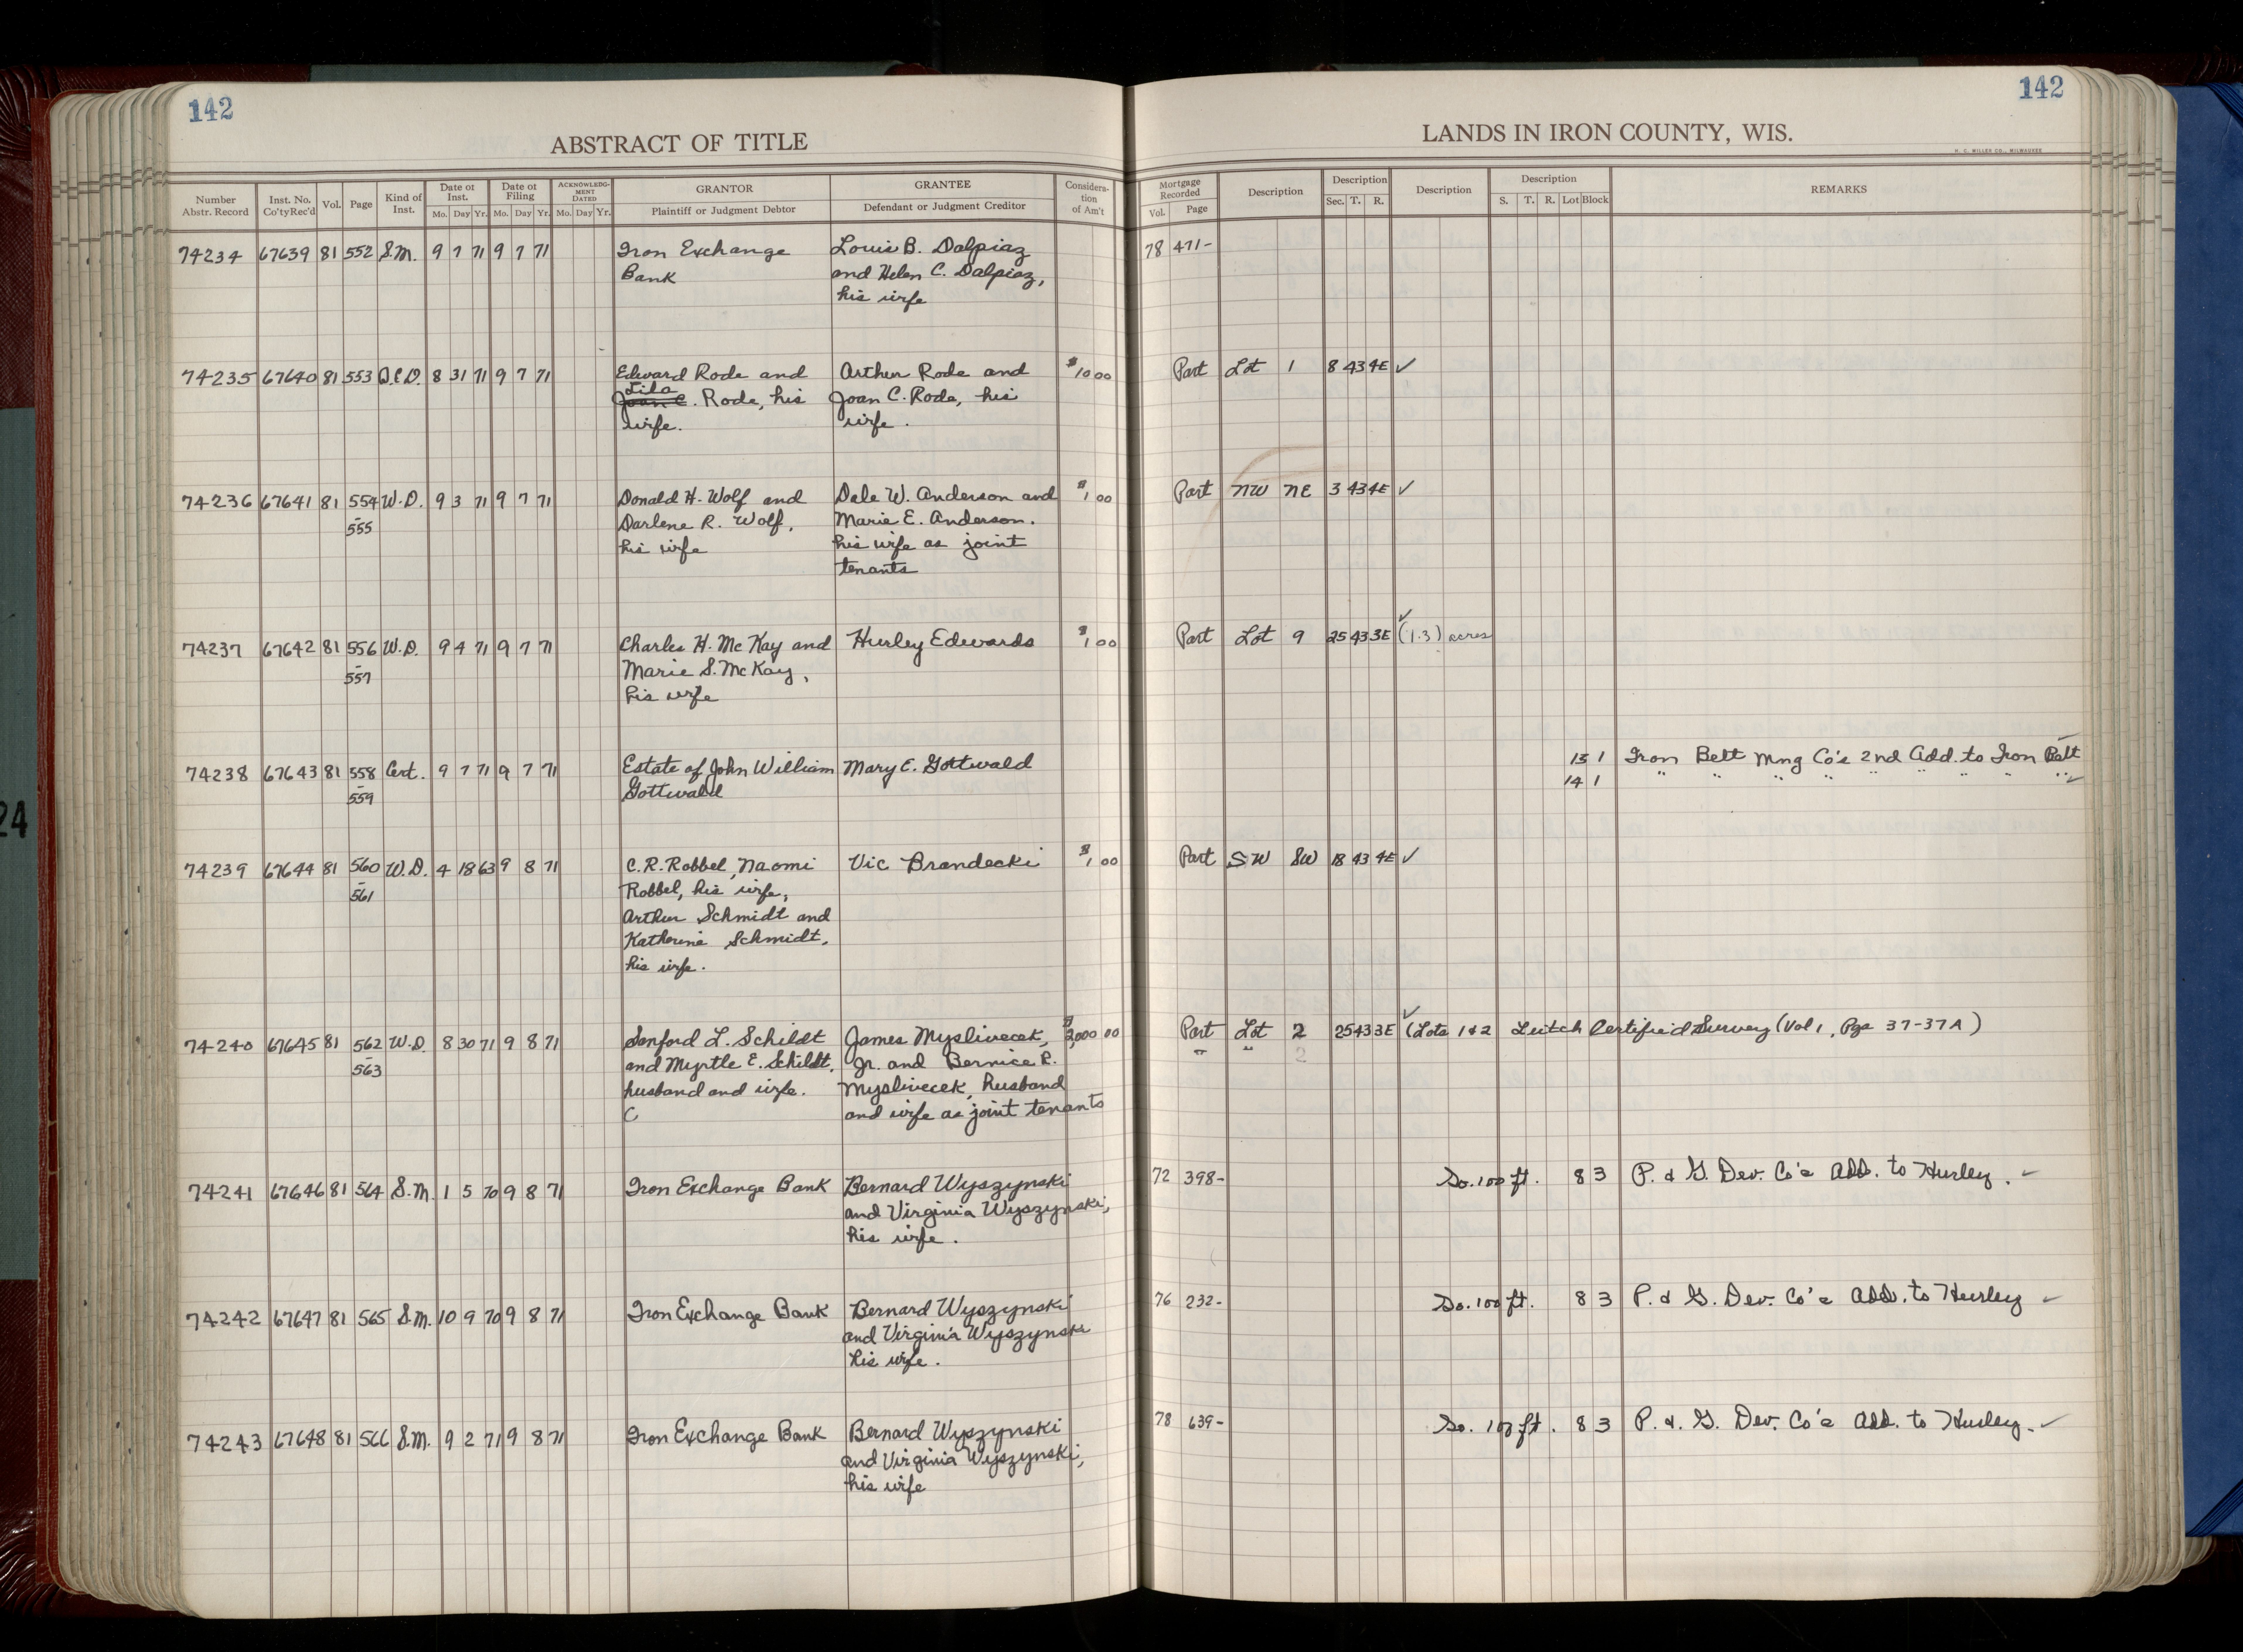 142
142
ABSTRACT OF TITLE
LANDS IN IRON COUNTY, WIS.
H. C. MILLER CO., MILWAUKEE
Number Abstr. Record
Inst. No. Co'ty Rec'd
Vol.
Page
Kind of Inst.
Date of Inst. Mo. Day Yr.
Date of Filing Mo. Day Yr.
ACKNOWLEDGMENT DATED Mo. Day Yr.
GRANTOR Plaintiff or Judgment Debtor
GRANTEE Defendant or Judgment Creditor
Consideration of Am't
Mortgage Recorded Vol. Page
Description
Description Sec. T. R.
Description
Description S. T. R. Lot Block
REMARKS
74234 67639 81 552 S.M. 9 7 71 9 7 71 Iron Exchange Louis B. Dalpiaz 78 471-
Bank and Helen C. Dalpiaz,
his wife
74235 67640 81 553 Q.C.D. 8 31 71 9 7 71 Edward Rode and Arthur Rode and $10 00 Part Lot 1 8 43 4E ✓
Joan C. Rode, his Joan C. Rode, his
wife. wife.
74236 67641 81 554 W.D. 9 3 71 9 7 71 Donald H. Wolf and Dale W. Anderson and $1 00 Part NW NE 3 43 4E ✓
- 555 Darlene R. Wolf, Marie E. Anderson.
his wife his wife as joint
tenants
74237 67642 81 556 W.D. 9 4 71 9 7 71 Charles H. McKay and Hurley Edwards $1 00 Part Lot 9 25 43 3E ✓ (1.3) acres
- 557 Marie S. McKay,
his wife
74238 67643 81 558 Cert. 9 7 71 9 7 71 Estate of John William Mary E. Gottwald 13 1 Iron Belt Mng Co's 2nd Add. to Iron Belt
- 559 Gottwald 14 1 " " " " " " " " ✓
74239 67644 81 560 W.D. 4 18 63 9 8 71 C.R. Robbel, Naomi Vic Brandecki $1 00 Part SW SW 18 43 4E ✓
- 561 Robbel, his wife,
Arthur Schmidt and
Katherine Schmidt,
his wife.
74240 67645 81 562 W.D. 8 30 71 9 8 71 Sanford L. Schildt James Myslivecek, $2,000 00 Part Lot 2 25 43 3E ✓ (Lots 1 & 2 Leitch Certified Survey (Vol 1, Pgs 37-37A)
- 563 and Myrtle E. Schildt, Jr. and Bernice R. " " 2
husband and wife. Myslivecek, husband
C and wife as joint tenants
74241 67646 81 564 S.M. 1 5 70 9 8 71 Iron Exchange Bank Bernard Wyszynski 72 398- So. 100 ft. 8 3 P. & G. Dev. Co's Add. to Hurley. ✓
and Virginia Wyszynski,
his wife.
74242 67647 81 565 S.M. 10 9 70 9 8 71 Iron Exchange Bank Bernard Wyszynski 76 232- So. 100 ft. 8 3 P. & G. Dev. Co's Add. to Hurley ✓
and Virginia Wyszynski
his wife.
74243 67648 81 566 S.M. 9 2 71 9 8 71 Iron Exchange Bank Bernard Wyszynski 78 639- So. 100 ft. 8 3 P. & G. Dev. Co's Add. to Hurley. ✓
and Virginia Wyszynski,
his wife
24